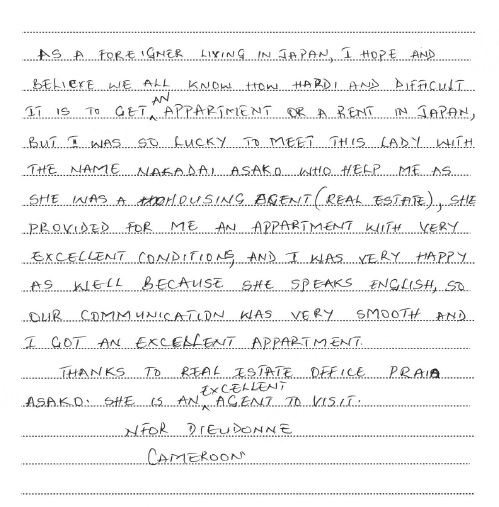 AS A FOREIGNER LIVING IN JAPAN, I HOPE AND
BELIEVE WE ALL KNOW HOW HARDI AND DIFFICULT
IT IS TO GET AN APPARTMENT OR A RENT IN JAPAN,
BUT I WAS SO LUCKY TO MEET THIS LADY WITH
THE NAME NAKADAI ASAKO WHO HELP ME AS
SHE WAS A HOUSING AGENT (REAL ESTATE), SHE
PROVIDED FOR ME AN APPARTMENT WITH VERY
EXCELLENT CONDITIONS, AND I WAS VERY HAPPY
AS WELL BECAUSE SHE SPEAKS ENGLISH, SO
OUR COMMUNICATION WAS VERY SMOOTH AND
I GOT AN EXCELLENT APPARTMENT.
THANKS TO REAL ESTATE OFFICE PRAIA
ASAKO. SHE IS AN EXCELLENT AGENT TO VISIT.
NFOR DIEUDONNE
CAMEROON